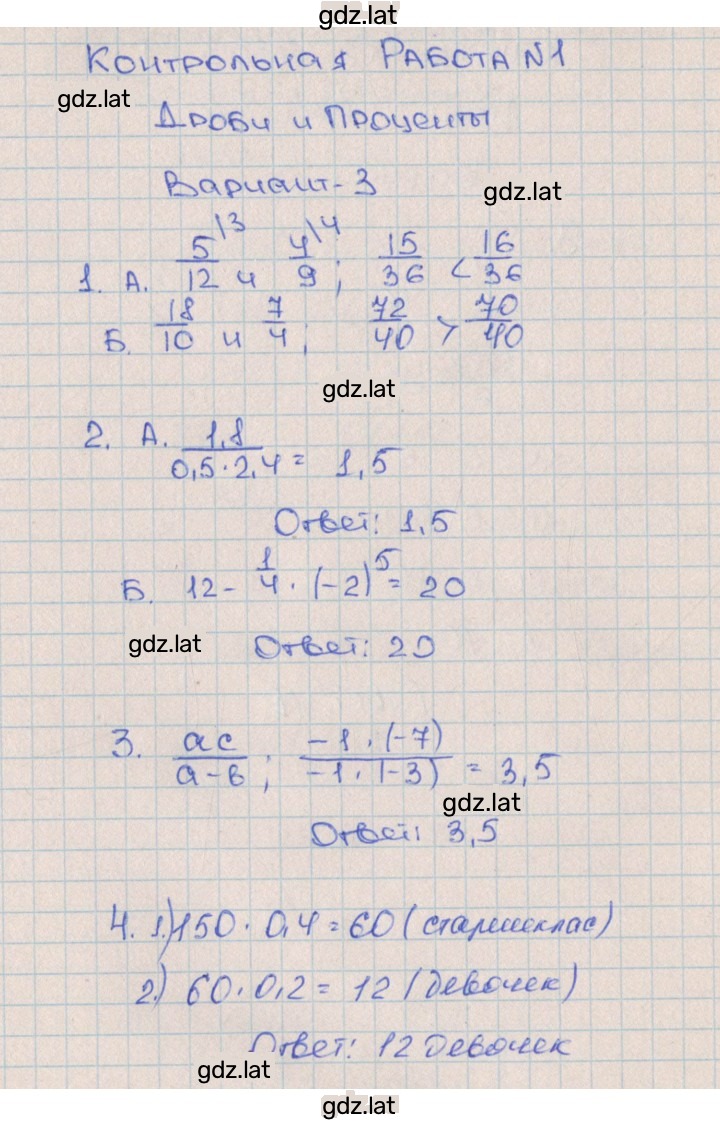 gdz.lat
Контрольная Работа №1
gdz.lat
Дроби и Проценты
Вариант-3
gdz.lat
1. А. 5/12 \3 и 4/9 \4; 15/36 < 16/36
Б. 18/10 и 7/4; 72/40 > 70/40
gdz.lat
2. А. 1,8/0,5·2,4 = 1,5
Ответ: 1,5
Б. 12 - 1/4 · (-2)^5 = 20
gdz.lat
Ответ: 20
3. ac/a-в; -1·(-7)/-1·(-3) = 3,5
gdz.lat
Ответ: 3,5
4. 1.) 150 · 0,4 = 60 (старшеклас)
2.) 60 · 0,2 = 12 (девочек)
Ответ: 12 девочек
gdz.lat
gdz.lat